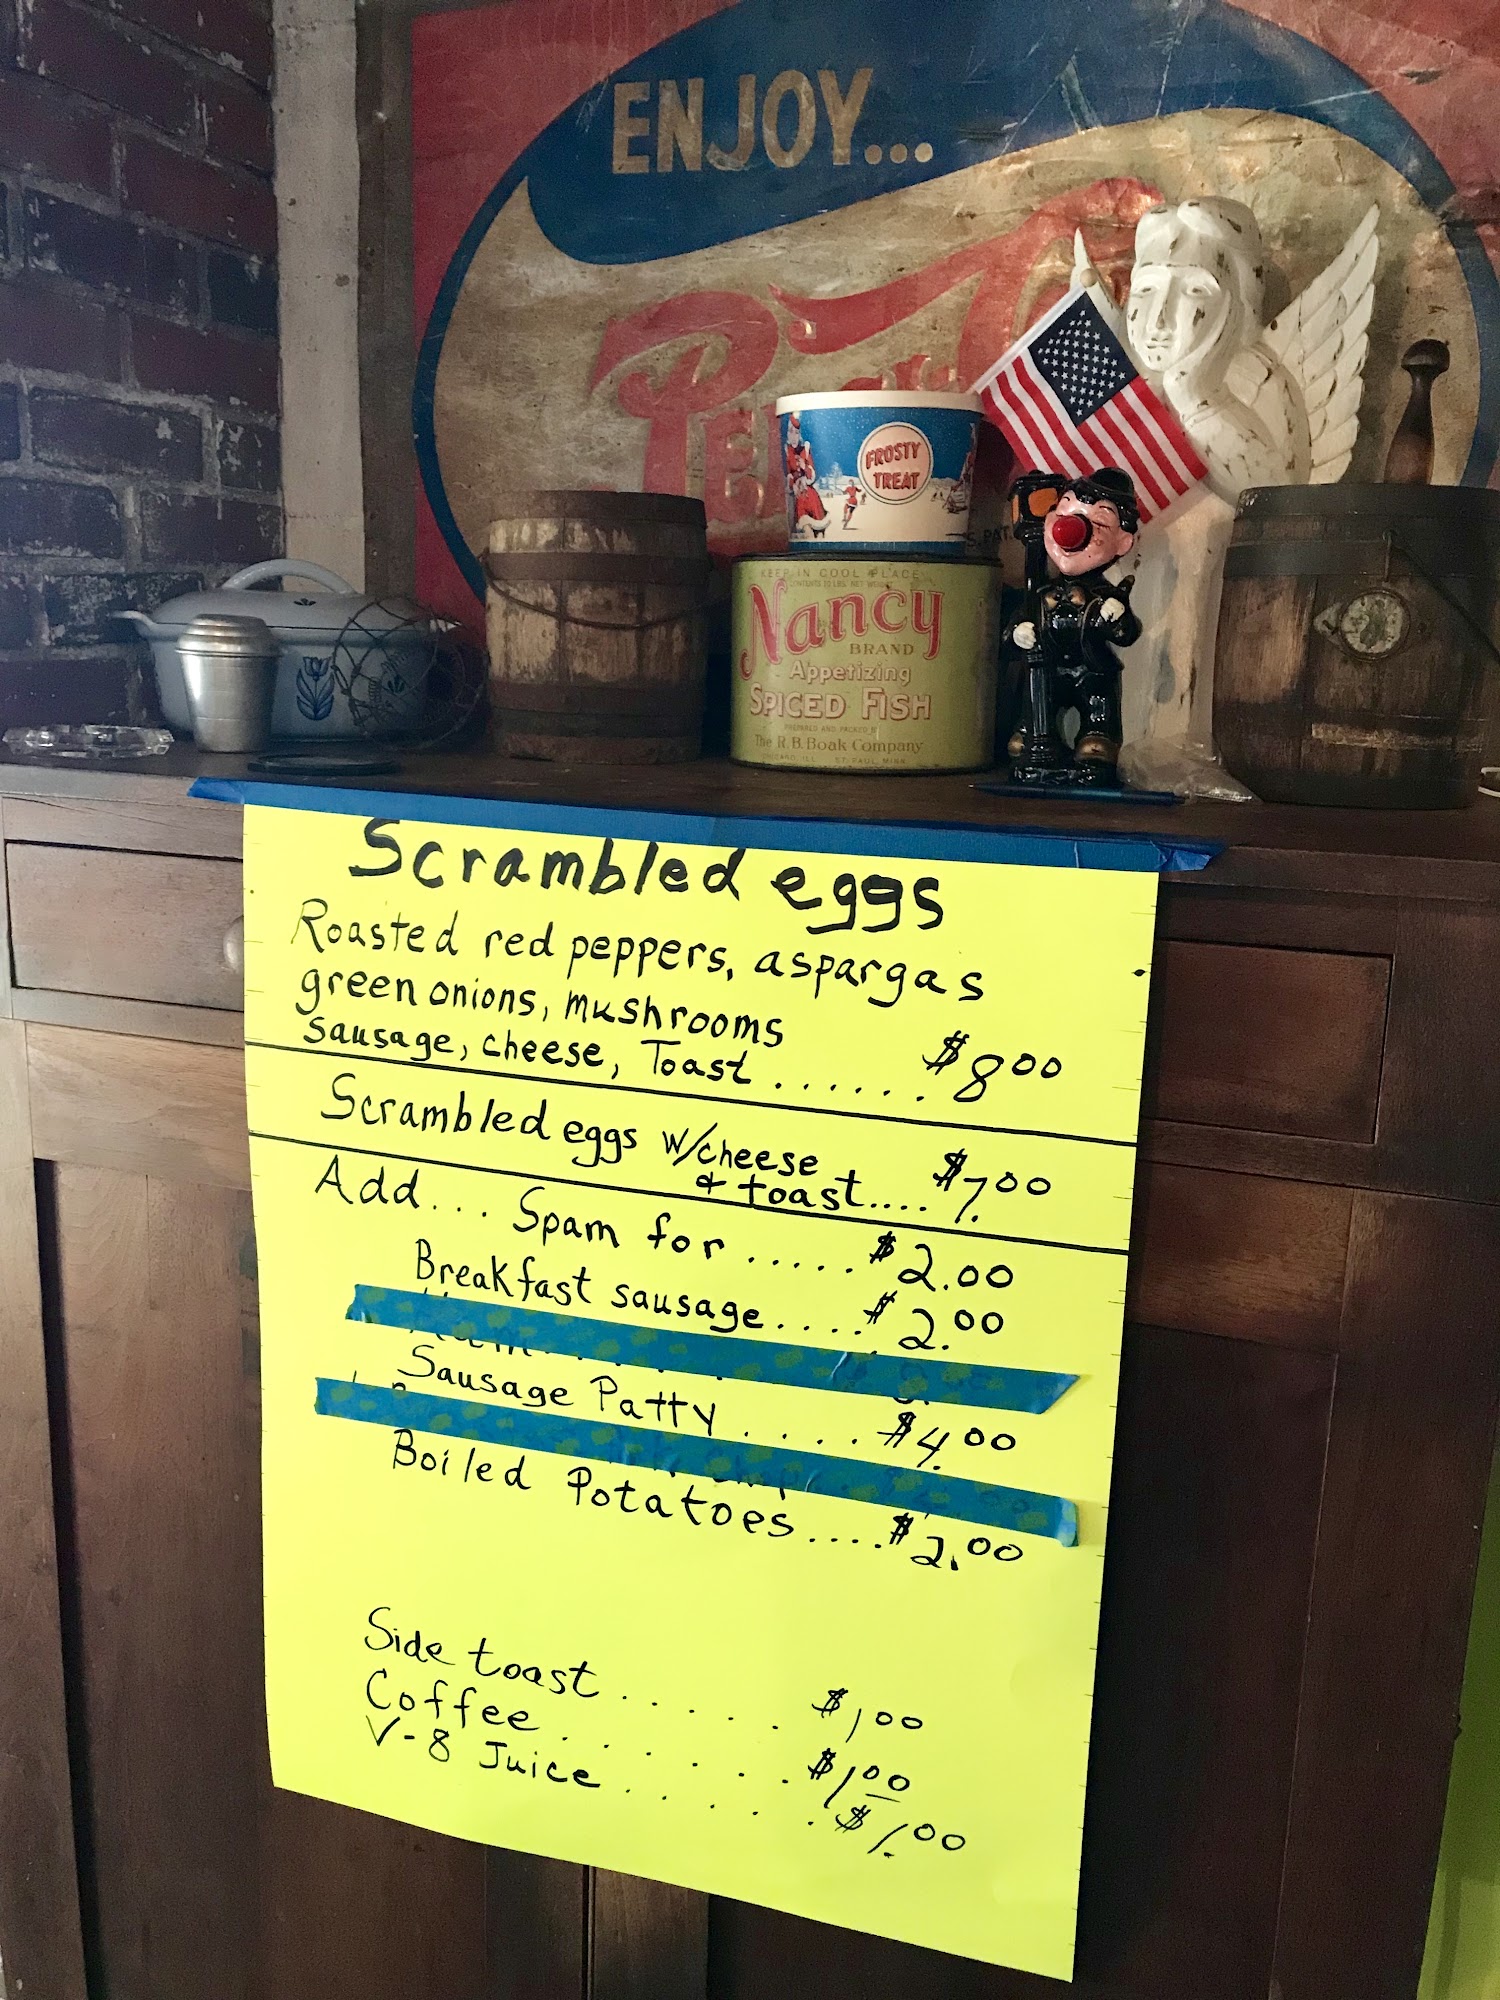 ENJOY...
FROSTY
TREAT
KEEP IN COOL PLACE
Nancy
BRAND
Appetizing
SPICED FISH
PREPARED AND PACKED BY
The R.B. Boak Company
ST. PAUL, MINN.
Scrambled eggs
Roasted red peppers, aspargas
green onions, mushrooms
sausage, cheese, Toast ...... $8.00
Scrambled eggs w/cheese
& toast.... $7.00
Add... Spam for ..... $2.00
Breakfast sausage.... $2.00
Sausage Patty .... $4.00
Boiled Potatoes .... $2.00
Side toast ..... $1.00
Coffee ...... $1.00
V-8 Juice ..... $1.00